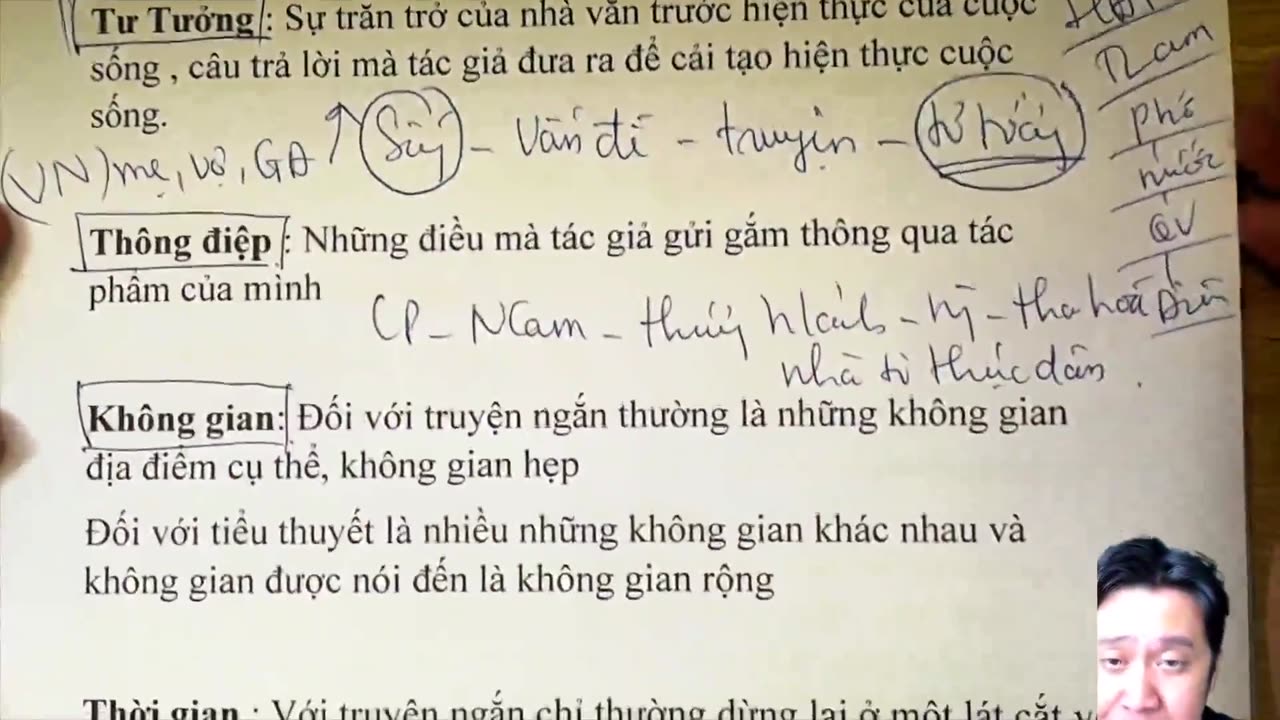 Tư Tưởng : Sự trăn trở của nhà văn trước hiện thực của cuộc
sống , câu trả lời mà tác giả đưa ra để cải tạo hiện thực cuộc
sống.
(VN) mẹ, vợ, GĐ
- Vấn đề - truyện -
Nam
phố
nước
QV
Thông điệp : Những điều mà tác giả gửi gắm thông qua tác
phẩm của mình
CP - NCam -
nhà tù thực dân .
Không gian: Đối với truyện ngắn thường là những không gian
địa điểm cụ thể, không gian hẹp
Đối với tiểu thuyết là nhiều những không gian khác nhau và
không gian được nói đến là không gian rộng
Thời gian : Với truyện ngắn chỉ thường dừng lại ở một lát cắt